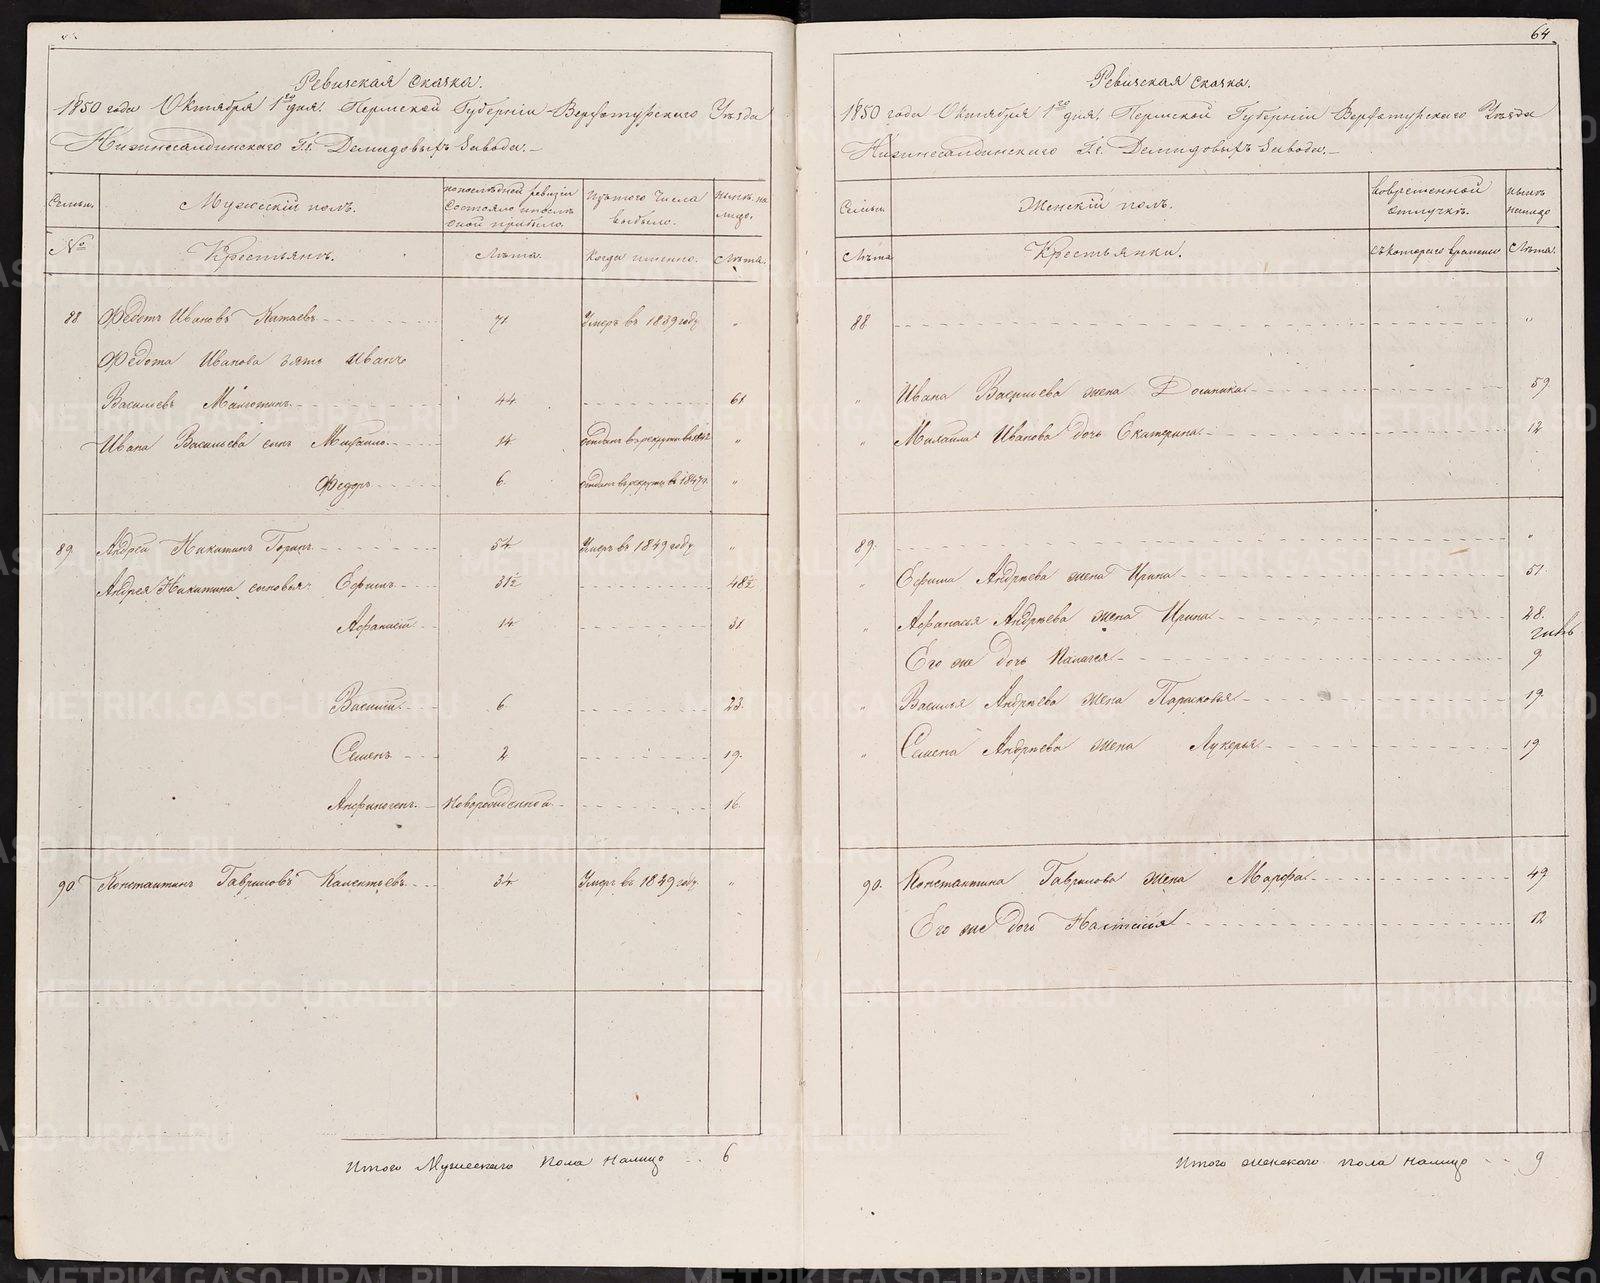 Ревизская сказка.
1850 года Октября 1го дня. Пермской Губерніи Верхотурскаго Уѣзда
Нижнесалдинскаго Гг. Демидовыхъ Завода.
Семьи.
Мужескій полъ.
по послѣдней ревизіи состояло и послѣ оной прибыло.
Изъ того числа выбыло.
нынѣ на лицо.
№
Крестьянъ.
Лѣта.
Когда именно.
Лѣта.
88. Федотъ Ивановъ Китаевъ 71 Умеръ въ 1839 году "
Федота Иванова зять Иванъ
Васильевъ 44 61
Ивана Васильева сынъ Михайло 14 отданъ въ рекруты въ "
Федоръ 6. отданъ въ рекруты въ 1847 г. "
89. Андрей Никитинъ 54 Умеръ въ 1849 году "
Андрея Никитина сыновья Ефимъ 31½ 48½
Афанасій 14 31
Василій 6. 23.
Семенъ 2 19.
Анфиногенъ новорожденной 16.
90. Константинъ Гавриловъ Калентьевъ 34 Умеръ въ 1839 году. "
Итого Мужескаго пола налицо 6
64
Ревизская сказка.
1850 года Октября 1го дня. Пермской Губерніи Верхотурскаго Уѣзда
Нижнесалдинскаго Гг. Демидовыхъ Завода.
Семьи.
Женскій полъ.
во временной отлучкѣ.
нынѣ налицо
Лѣта
Крестьянки.
съ котораго времени
Лѣта.
88 "
" Ивана Васильева жена 59.
" Михайла Иванова дочь Екатерина 12
89. "
Ефима Андреева жена Ирина 51.
" Афанасья Андреева жена Ирина 28.
Его же дочь Палагея 9.
" Василья Андреева жена Парасковья 19.
" Семена Андреева жена Лукерья 19
90. Константина Гаврилова жена Марфа 49
Его же дочь Настасья 12
Итого женскаго пола налицо 9
METRIKI.GASO-URAL.RU